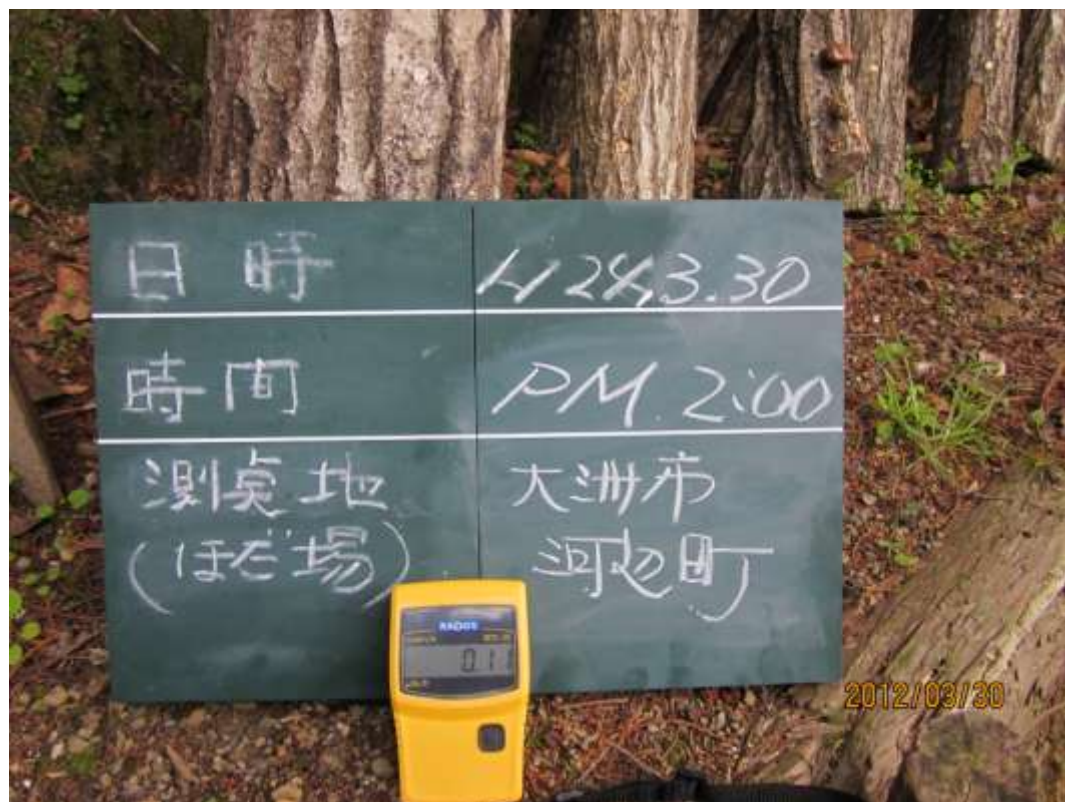 日時 H24.3.30
時間 PM.2:00
測点地 大洲市
(ほだ場)河辺町
RADOS
0.11
2012/03/30